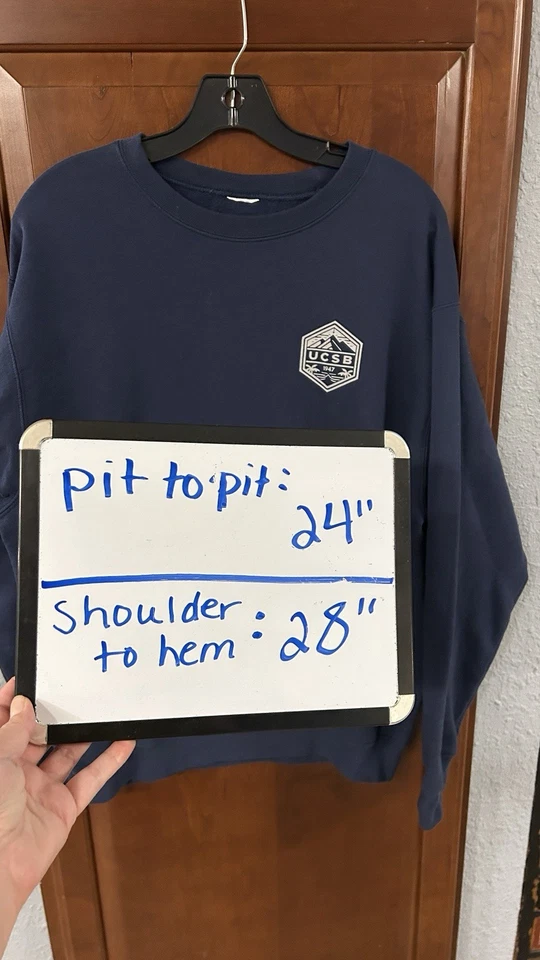 UCSB
1947
pit to pit:
24"
Shoulder
to hem : 28"